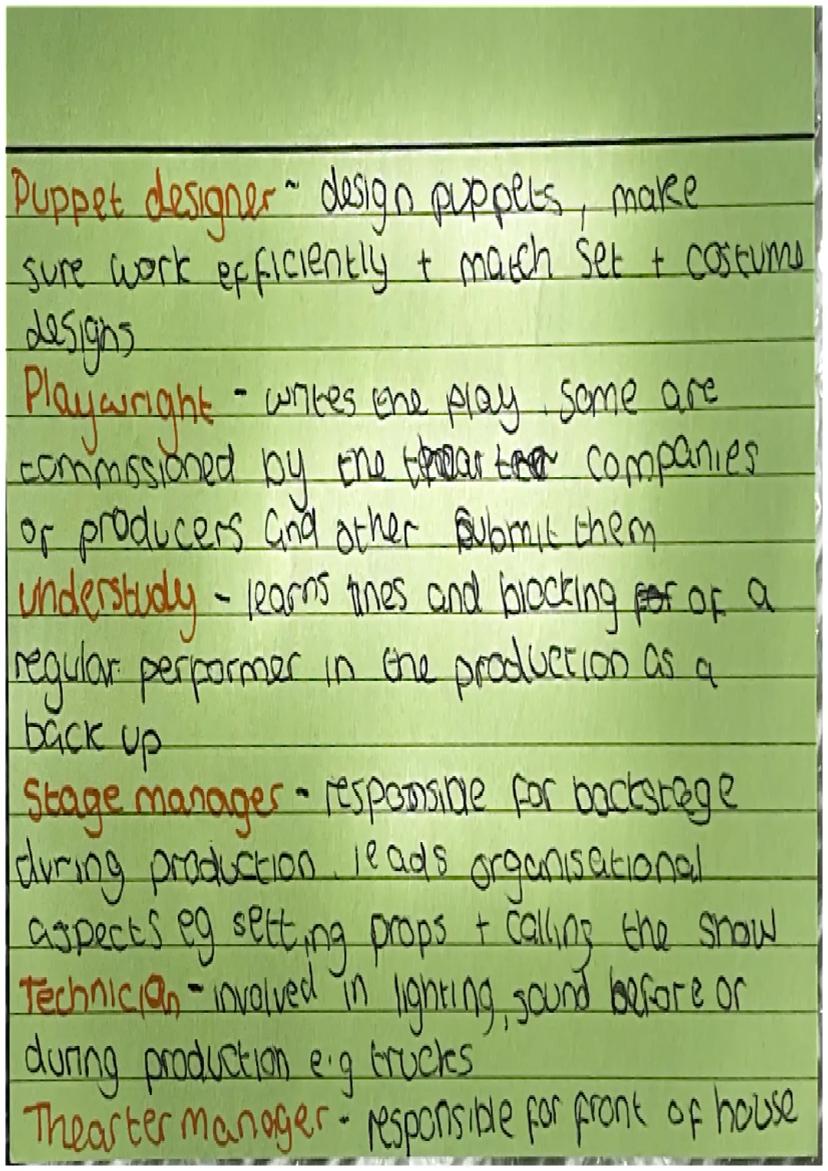 Puppet designer ~ design puppets, make
sure work efficiently + match set + costums
designs
Playwright - writes the play. some are
commssioned by the companies
or producers and other submit them
understudy - learns lines and blocking of a
regular performer in the production as a
back up
Stage manager - responsible for backstage
during production. leads organisational
aspects eg setting props + calling the show
Technician - involved in lighting, sound before or
during production e.g trucks
Thearter manager - responsible for front of house